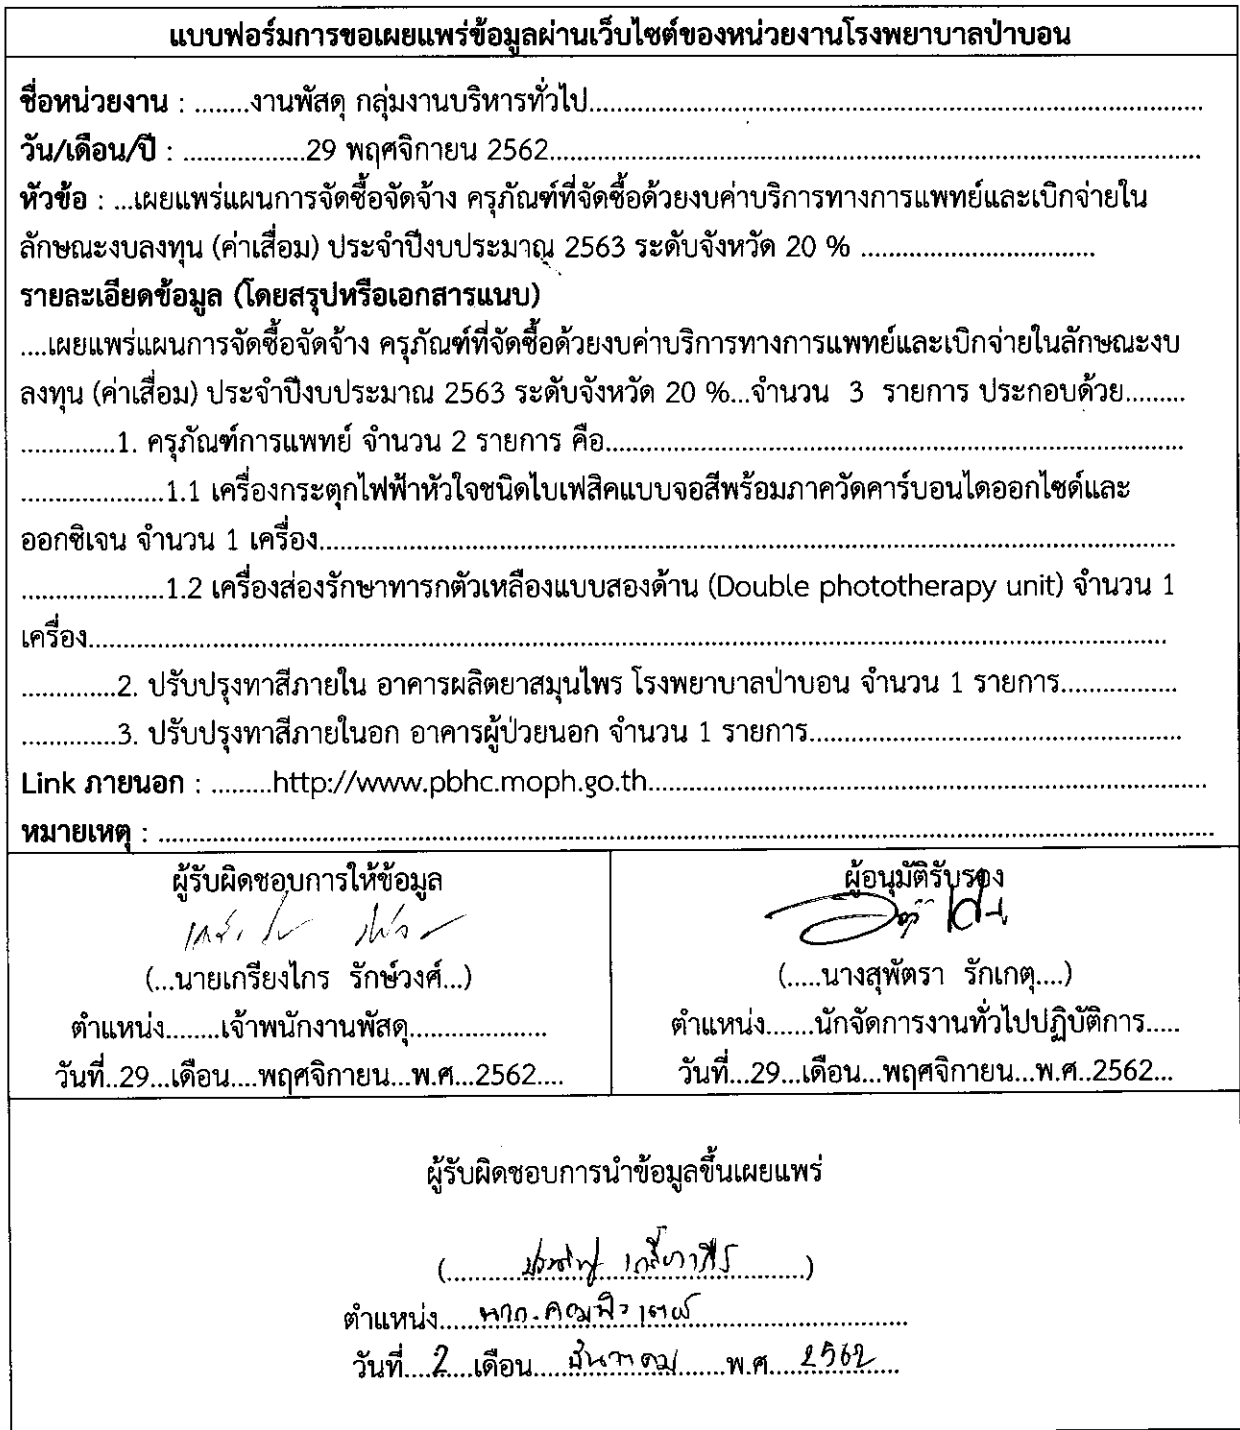 แบบฟอร์มการขอเผยแพร่ข้อมูลผ่านเว็บไซต์ของหน่วยงานโรงพยาบาลป่าบอน
ชื่อหน่วยงาน : ........งานพัสดุ กลุ่มงานบริหารทั่วไป..........
วัน/เดือน/ปี : .................29 พฤศจิกายน 2562..........
หัวข้อ : ...เผยแพร่แผนการจัดซื้อจัดจ้าง ครุภัณฑ์ที่จัดซื้อด้วยงบค่าบริการทางการแพทย์และเบิกจ่ายใน
ลักษณะงบลงทุน (ค่าเสื่อม) ประจำปีงบประมาณ 2563 ระดับจังหวัด 20 % ..........
รายละเอียดข้อมูล (โดยสรุปหรือเอกสารแนบ)
....เผยแพร่แผนการจัดซื้อจัดจ้าง ครุภัณฑ์ที่จัดซื้อด้วยงบค่าบริการทางการแพทย์และเบิกจ่ายในลักษณะงบ
ลงทุน (ค่าเสื่อม) ประจำปีงบประมาณ 2563 ระดับจังหวัด 20 %...จำนวน 3 รายการ ประกอบด้วย.........
.............1. ครุภัณฑ์การแพทย์ จำนวน 2 รายการ คือ..........
....................1.1 เครื่องกระตุกไฟฟ้าหัวใจชนิดไบเฟสิคแบบจอสีพร้อมภาควัดคาร์บอนไดออกไซด์และ
ออกซิเจน จำนวน 1 เครื่อง..........
....................1.2 เครื่องส่องรักษาทารกตัวเหลืองแบบสองด้าน (Double phototherapy unit) จำนวน 1
เครื่อง..........
.............2. ปรับปรุงทาสีภายใน อาคารผลิตยาสมุนไพร โรงพยาบาลป่าบอน จำนวน 1 รายการ................
.............3. ปรับปรุงทาสีภายในอก อาคารผู้ป่วยนอก จำนวน 1 รายการ..........
Link ภายนอก : .........http://www.pbhc.moph.go.th..........
หมายเหตุ : ..........
ผู้รับผิดชอบการให้ข้อมูล
(...นายเกรียงไกร รักษ์วงศ์...)
ตำแหน่ง........เจ้าพนักงานพัสดุ...................
วันที่..29...เดือน....พฤศจิกายน...พ.ศ...2562....
ผู้อนุมัติรับรอง
(.....นางสุพัตรา รักเกตุ....)
ตำแหน่ง.......นักจัดการงานทั่วไปปฏิบัติการ.....
วันที่...29...เดือน...พฤศจิกายน...พ.ศ..2562...
ผู้รับผิดชอบการนำข้อมูลขึ้นเผยแพร่
ตำแหน่ง.....
วันที่....2....เดือน....ธันวาคม......พ.ศ....2562....